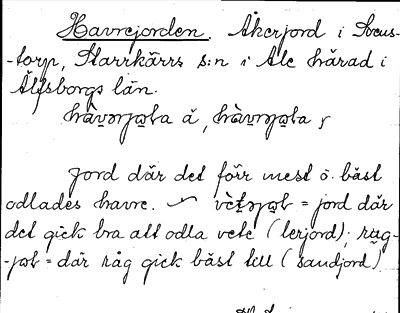 Havrejorden. Åkerjord i Sveus-
-torp, Starrkärrs s:n i Ale härad i
Älfsborgs län.
hàvrɘȷɷta ă, hàvrȷɷta ʃ
Jord där det förr mest o. bäst
odlades havre. – vètɘȷɷt = jord där
det gick bra att odla vete (lerjord); rug-
-ȷɷt = där råg gick bäst till (sandjord)